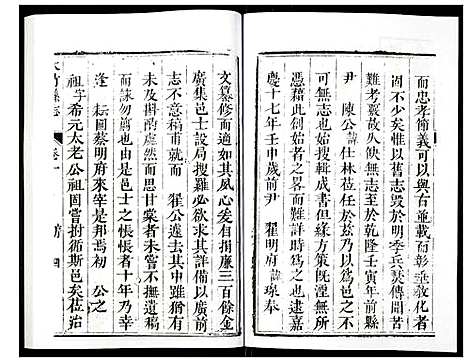 而忠孝節義可以與古並載而彰垂教化者
固不少矣惟以舊志毀於明季兵燹傳聞苦
難考覈故久佚無志至乾隆壬寅年前縣
尹 陳公諱仕林莅任於茲乃以爲邑不可無
憑藉此創始搜輯成書但缘方策旣湮无
之畧而難詳時爲之也逮嘉
慶十七年壬申歲前尹 瞿明府諱瑔奉
文纂修而適如其夙心爰有捐廉三百餘金
廣集邑士設局搜羅必欲求其備以廣前
志不意稿甫就而 瞿公遽去其中雖猶有
未及斟酌盡善而思甘棠者未嘗不撫遺稿
而誄勿翦也由是邑士之悵悵者十年乃幸
逢 耘圃蔡明府來宰是邦焉初 公之
祖字希元太老公祖固嘗拊循斯邑矣莅治
大竹縣志
卷一
序
四